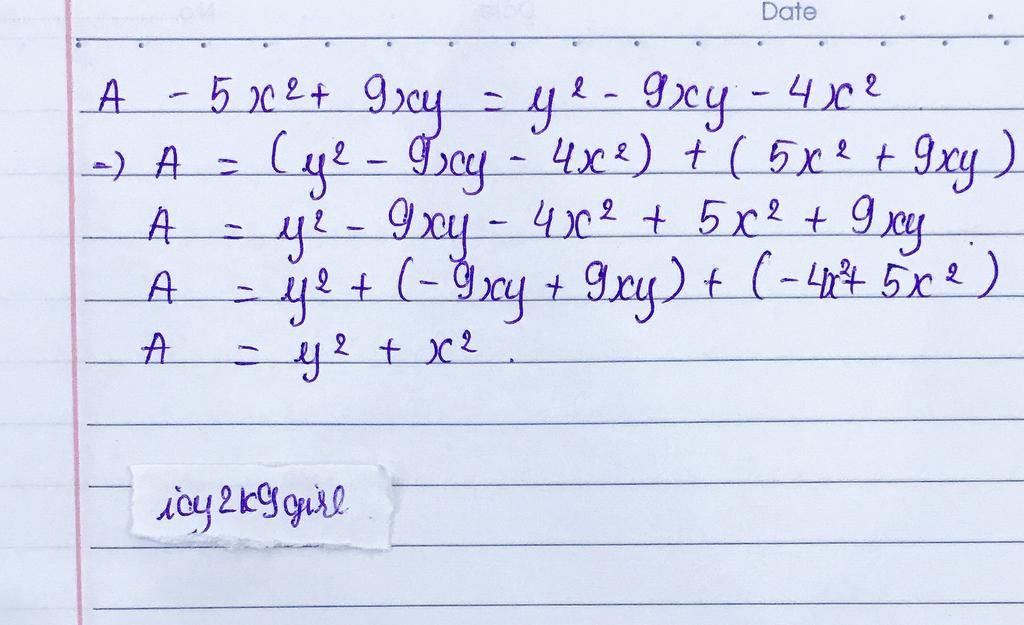 Date
A - 5x² + 9xy = y² - 9xy - 4x²
=) A = (y² - 9xy - 4x²) + (5x² + 9xy)
A = y² - 9xy - 4x² + 5x² + 9xy
A = y² + (-9xy + 9xy) + (-4x² + 5x²)
A = y² + x².
icy2k9girl